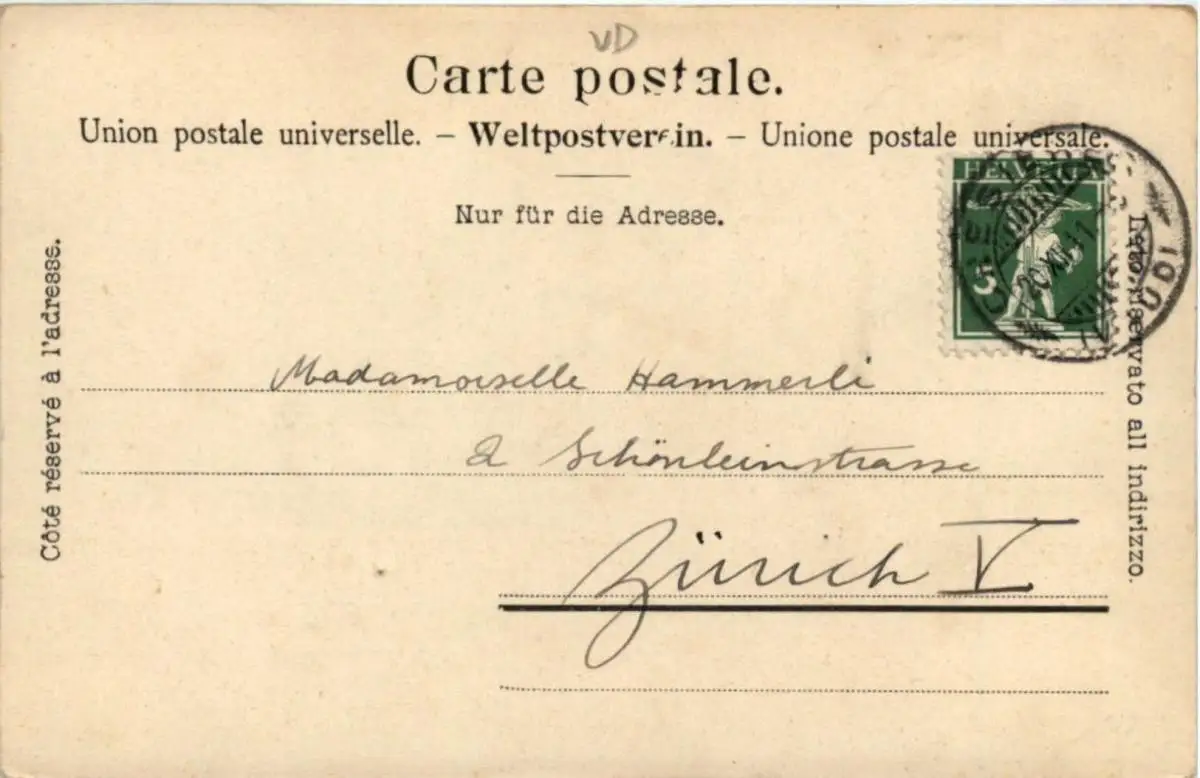 VD
Carte postale.
Union postale universelle. – Weltpostverein. – Unione postale universale.
Nur für die Adresse.
HELVETIA
5
20.XII.11
Côté réservé à l'adresse.
Lato riservato all indirizzo.
Madamoiselle Hammerli
2 Schönleinstrasse
Zürich V